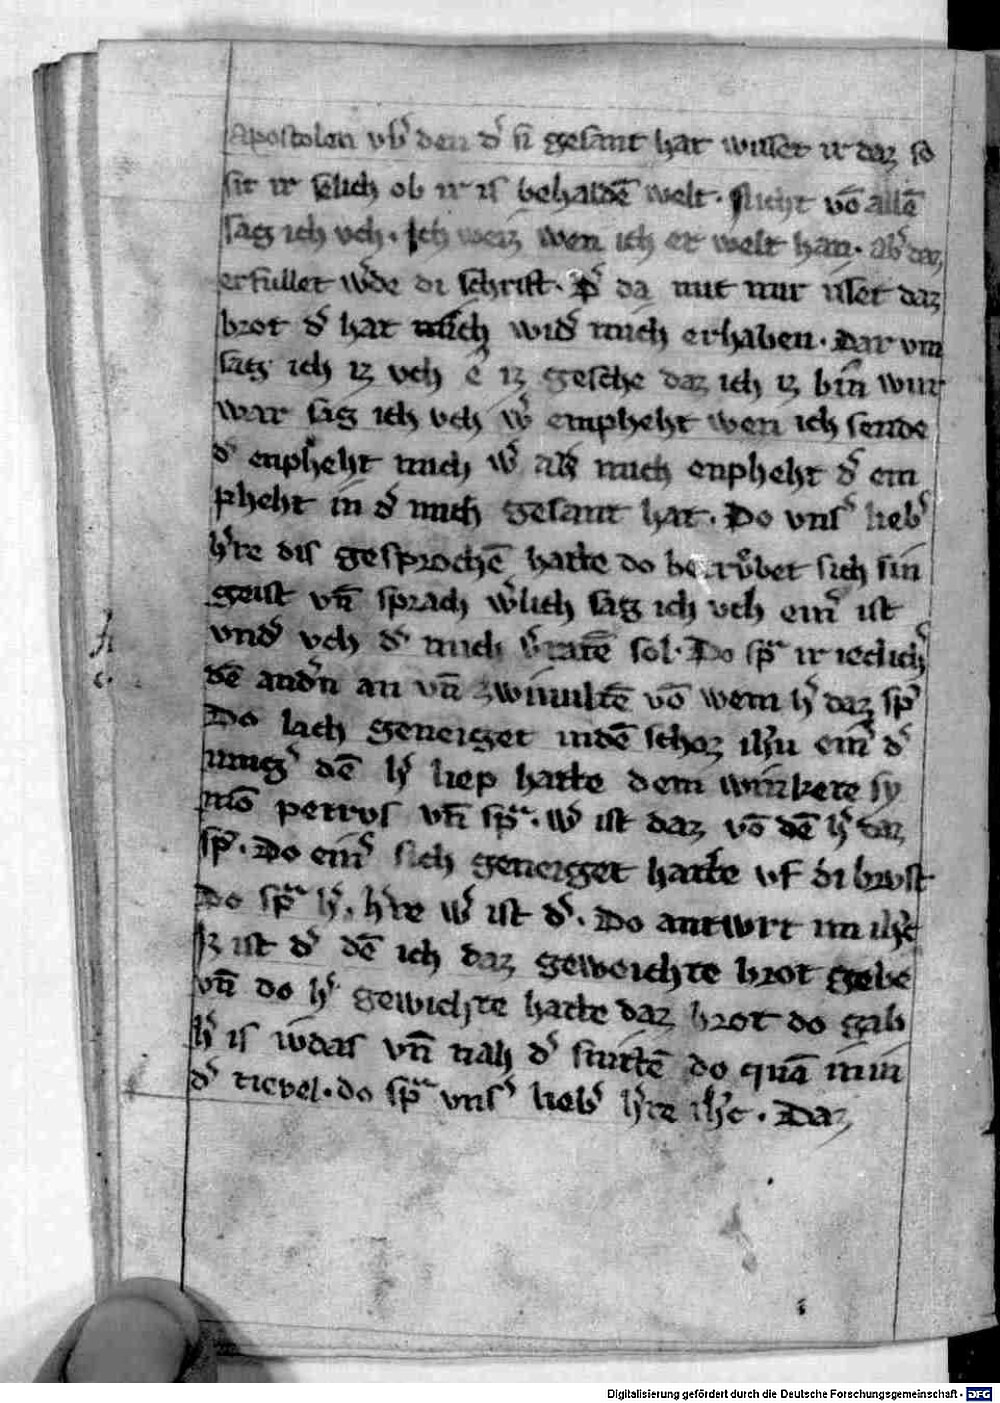 Apostolen vb᷑ den d᷑ si gesant hat wisset ir daz so
sit ir selich ob ir is behaldē welt. Nicht vō allē
sag ich vch. Ich weiz wen ich er welt han. ab᷑ daz
erfullet w᷑de di schrift. d᷑ da mit mir isset daz
brot d᷑ hat mich wid᷑ mich erhaben. Dar vm
sag ich iz vch e iz gesche daz ich iz bin wur
war sag ich vch w᷑ empheht wen ich sende
d᷑ enpheht mich w᷑ ab᷑ mich enpheht d᷑ em
pheht in d᷑ mich gesant hat. Do vns᷑ lieb᷑
h᷑re dis gesprochē hatte do betrůbet sich sin
geist vn̄ sprach w᷑lich sag ich vch ein᷑ ist
vnd᷑ vch d᷑ mich v᷑ratē sol. Do spͣ ir iclich᷑
dē and᷑n an vn̄ zwiuiltē vō wem h᷑ daz sp᷑
Do lach geneiget indē schoz ih᷑u ein᷑ d᷑
iung᷑ dē h᷑ liep hatte dem winkete sy
mō petrus vn̄ spͣ. w᷑ ist daz vō dē h᷑ daz
sp᷑. Do ein᷑ sich geneiget hatte vf di brvst
Do spͣ h᷑. h᷑re w᷑ ist d᷑. Do antwrt im ih᷑c
Iz ist d᷑ dē ich daz geweichte brot gebe
vn̄ do h᷑ gewichte hatte daz brot do gab
h᷑ is iwdas vn̄ nah d᷑ snittē do quā in in
d᷑ tievel. do spͣ vns᷑ lieb᷑ h᷑re ih᷑c. Daz
Digitalisierung gefördert durch die Deutsche Forschungsgemeinschaft - DFG